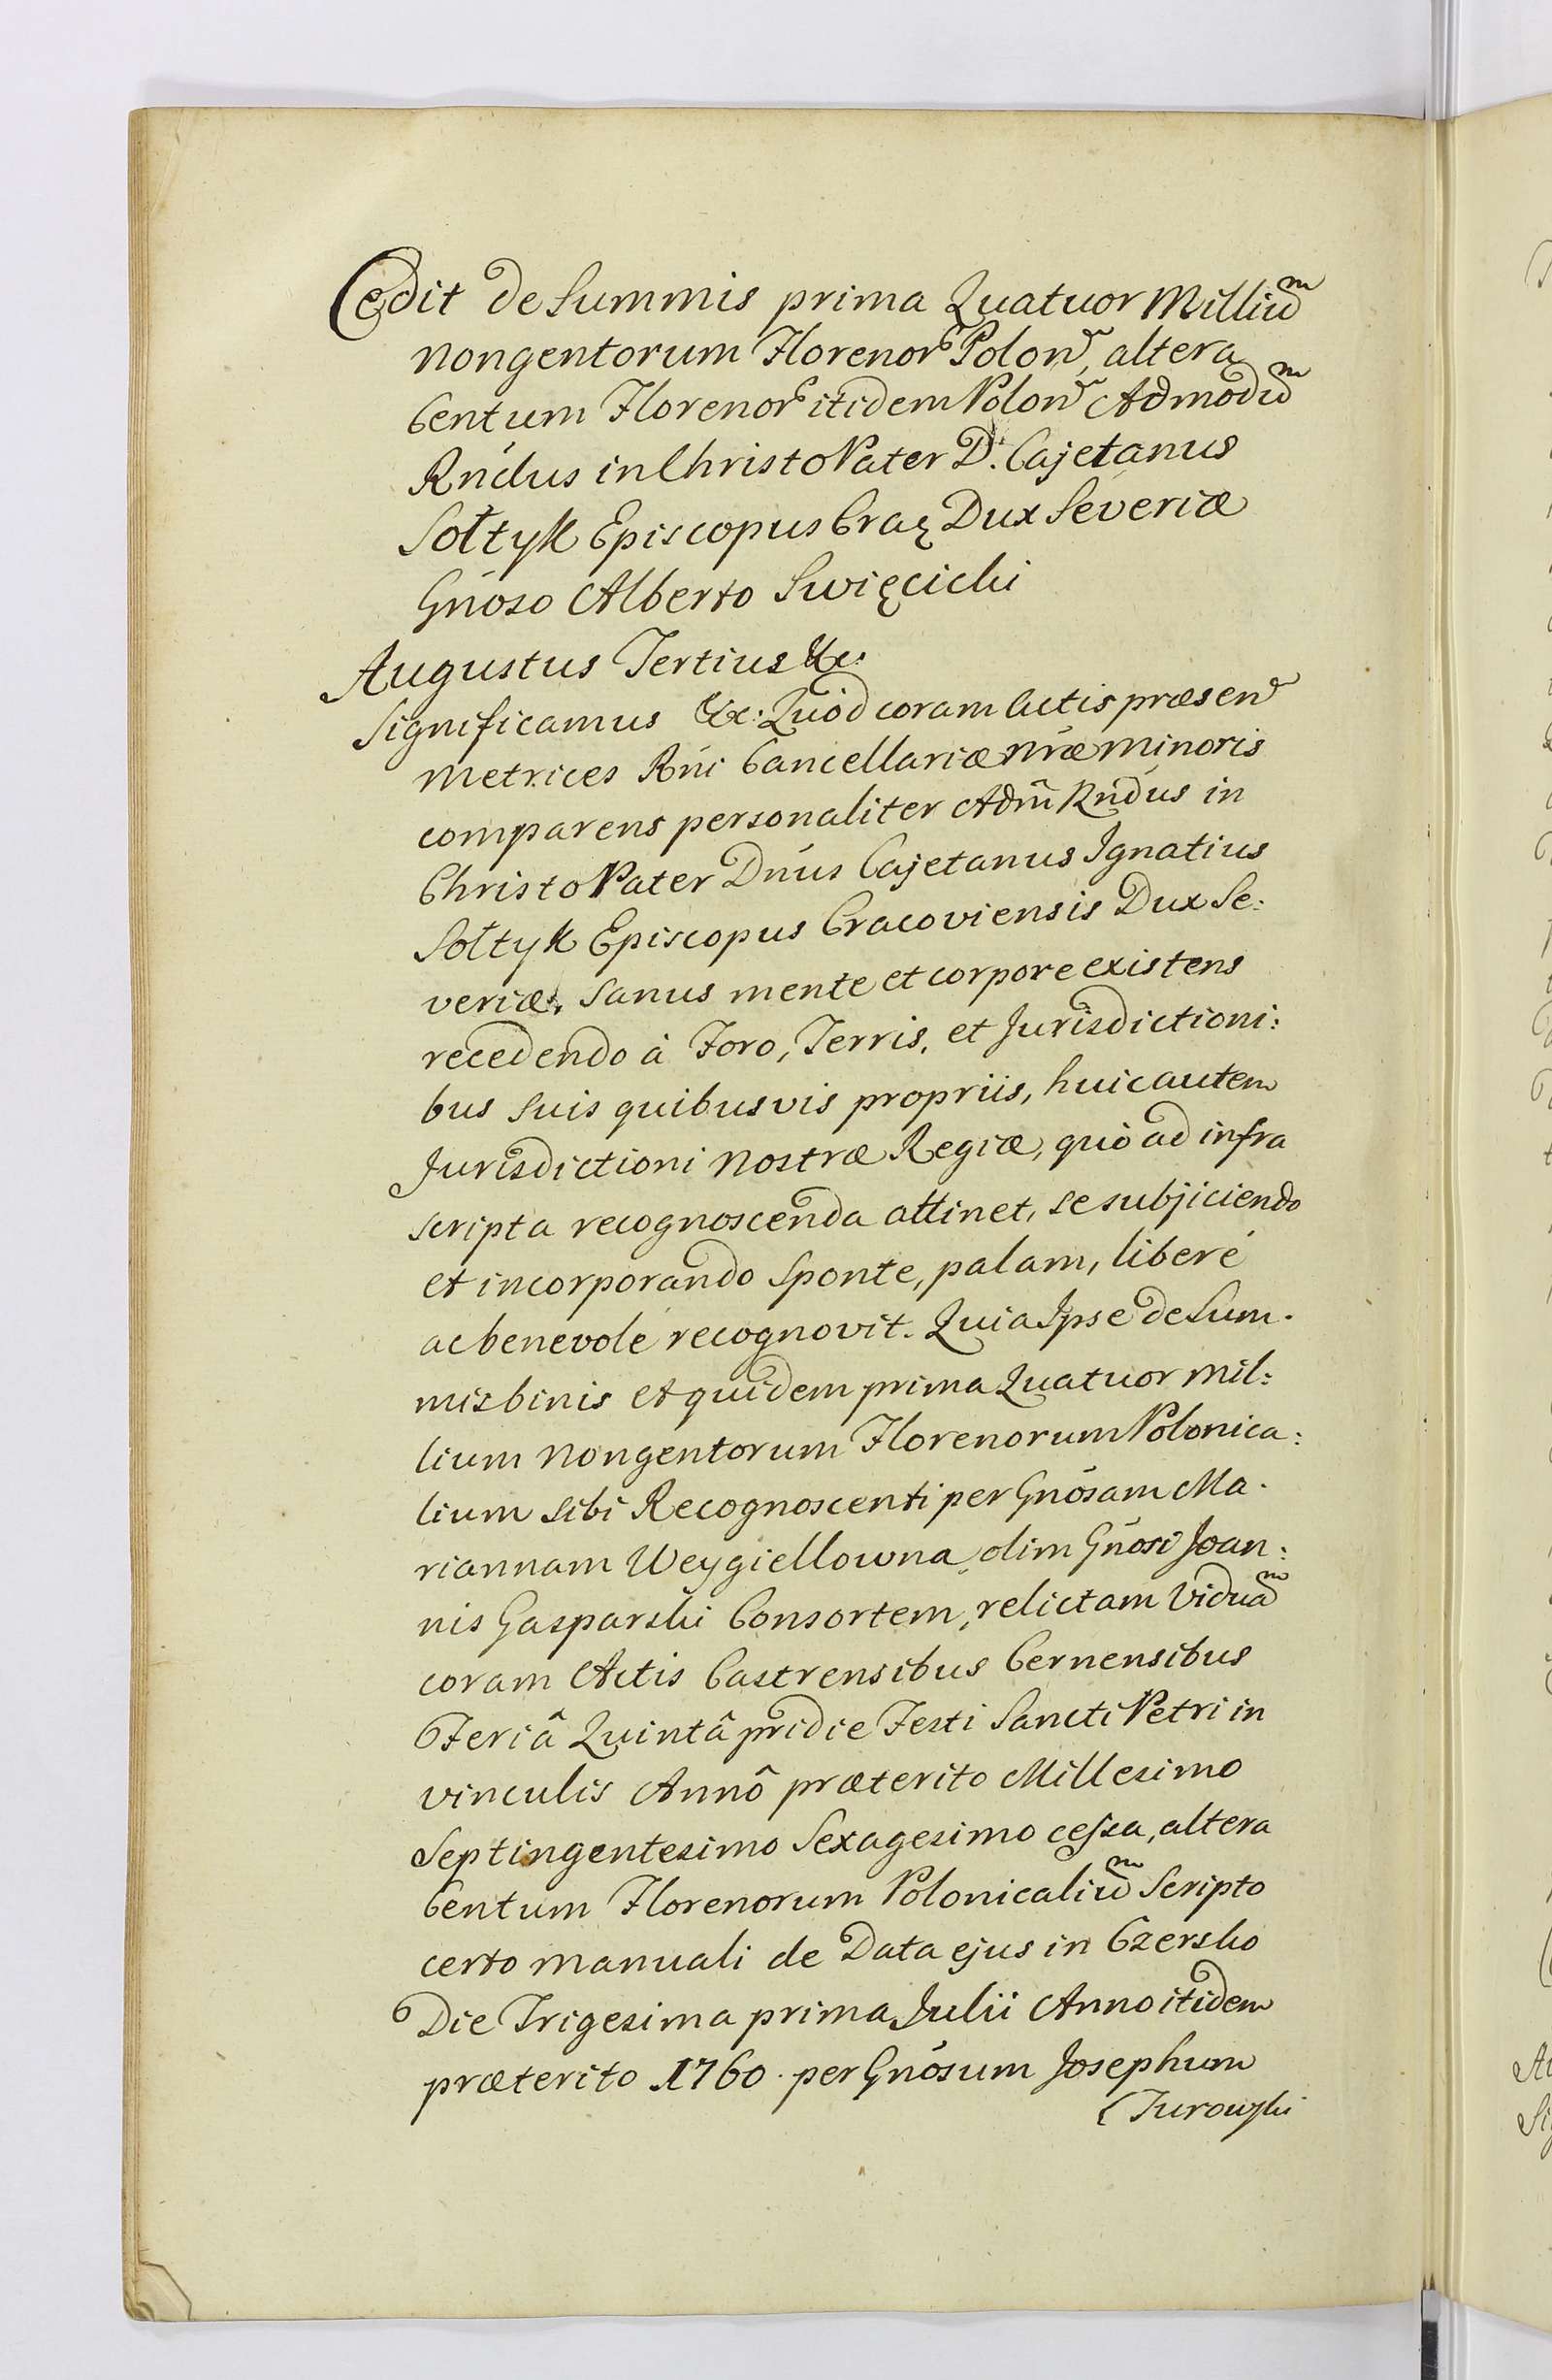 Cedit de Summis prima Quatuor Milliũm
nongentorum Florenor Polon, altera
Centum Florenor itidem Polon Admodũm
Rńdus in Christo Pater D. Cajetanus
Sołtyk Episcopus Crac Dux Severiæ
Gńoso Alberto Swięcicki
Augustus Tertius &c.
Significamus &c: Quod coram Actis præsen
Metrices Rńi Cancellariæ Nræ Minoris
comparens personaliter Adm̃ Rńdus in
Christo Pater Dńus Cajetanus Ignatius
Sołtyk Episcopus Cracoviensis Dux Se:
veriæ, sanus mente et corpore existens
recedendo à Foro, Terris, et Jurisdictioni:
bus suis quibusvis propriis, huic autem
Jurisdictioni nostræ Regiæ, quò ad infra
scripta recognoscenda attinet, se subjiciendo
et incorporando sponte, palam, liberé
ac benevolé recognovit. Quia Ipse de Sum.
mis binis et quidem prima Quatuor Mil:
lium Nongentorum Florenorum Polonica:
lium sibi Recognoscenti per Gńosam Ma.
riannam Weygiellowna, olim Gńosi Joan:
nis Gasparski Consortem, relictam Viduãm
coram Actis Castrensibus Cernensibus
Feriâ Quintâ pridie Festi Sancti Petri in
vinculis Annô præterito Millesimo
Septingentesimo Sexagesimo cessa, altera
Centum Florenorum Polonicaliũm Scripto
certo manuali de Data ejus in Czersko
Die Trigesima prima Julii Anno itidem
præterito 1760. per Gńosum Josephum
(Turowski